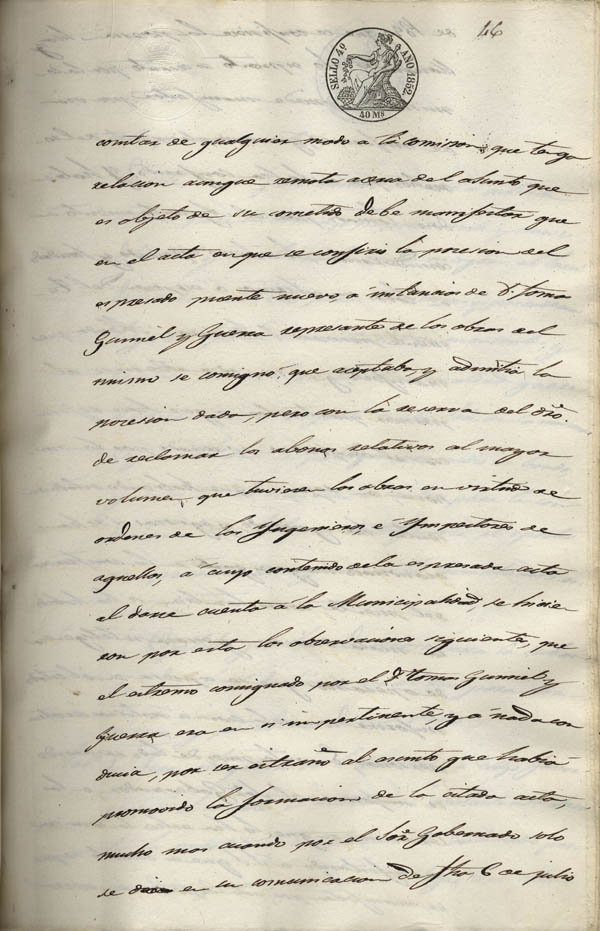 46
SELLO 4º AÑO 1852.
40 Ms
constar de qualquier modo a la comision, que tenga
relacion aunque remota acerca del asunto que
es objeto de su cometido debe manifestar que
en el acta en que se confirió la posesion del
espresado puente nuevo a instancias de D. Tomas
Gumiel y Guerra represante de las obras del
mismo se consignó: que aceptaba, y admitia la
posesion dada, pero con la reserva del dro.
de reclamar los abonos relativos al mayor
volumen, que tuvieren las obras en virtud de
ordenes de los Yngenieros, é Ynspectores de
aquellos, á cuyo contenido de la espresada acta
al darse cuenta á la Municipalidad, se hicie
ron por esta las observaciones siguientes, que
el estremo consignado por el D. Tomas Gumiel y
Guerra era en si impertinente, y á nada con
ducia, por ser estraño al asunto que habia
promovido la formacion de la citada acta,
mucho mas cuando por el Sor. Gobernado solo
se en su comunicacion de fha 6 de julio